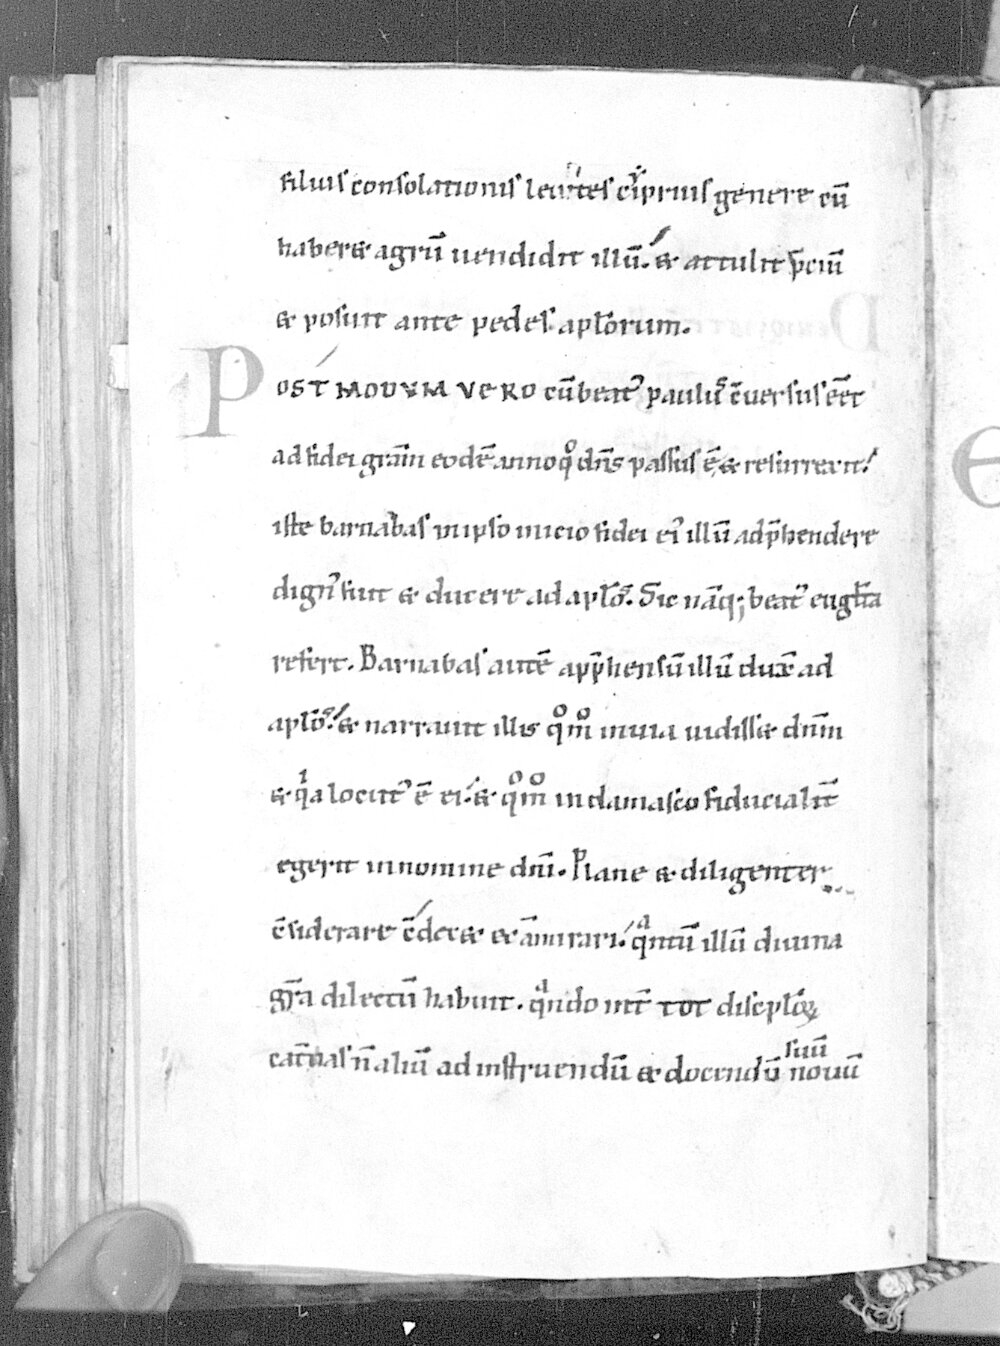 filius consolationis leuites cẏprius genere cū
haber& agrū uendidit illū. & attulit p̄ciū
& posuit ante pedes apłorum.
POST MODVM VERO cū beat᾽ paulus ↄ̄uersus ēēt
ad fidei gr̄am eodē anno qͦ dn̄s passus ē, & resurrexit.
iste barnabas in ipso inicio fidei ei᾽ illū adp̄hendere
dignat᾽ fuit & ducere ad apłos. Sic nāq; beat᾽ euglīsta
refert. Barnabas autē app̄hensū illū dux̄ ad
apłos. & narrauit illis qͦmͦ in uia uidiss& dn̄m
& qͥa locut᾽ ē ei. & qͦmͦ in damasco fiducialit̄
egerit in nomine dn̄i. Plane & diligenter
c̄siderare c̄dec& & āmirari. qͣntū illū diuina
gr̄a dilectū habuit. qͣndo int̄ tot discipłoꝝ
cat̄uas n̄ aliū ad instruendū & docendū suū nouū
E